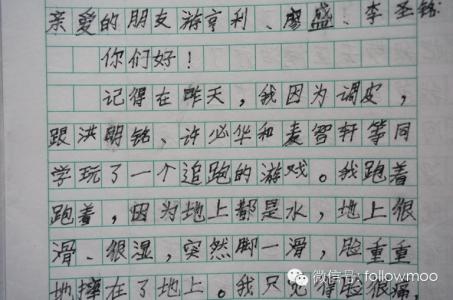 亲爱的朋友游亨利、廖盛、李圣铭:
你们好！
记得在昨天，我因为调皮，
跟洪明铭、许必华和麦智轩等同
学玩了一个追跑的游戏。我跑着
跑着，因为地上都是水，地上很
滑、很湿，突然脚一滑，脸重重
地摔在了地上。我只觉得脸很痛
微信号: followmoo